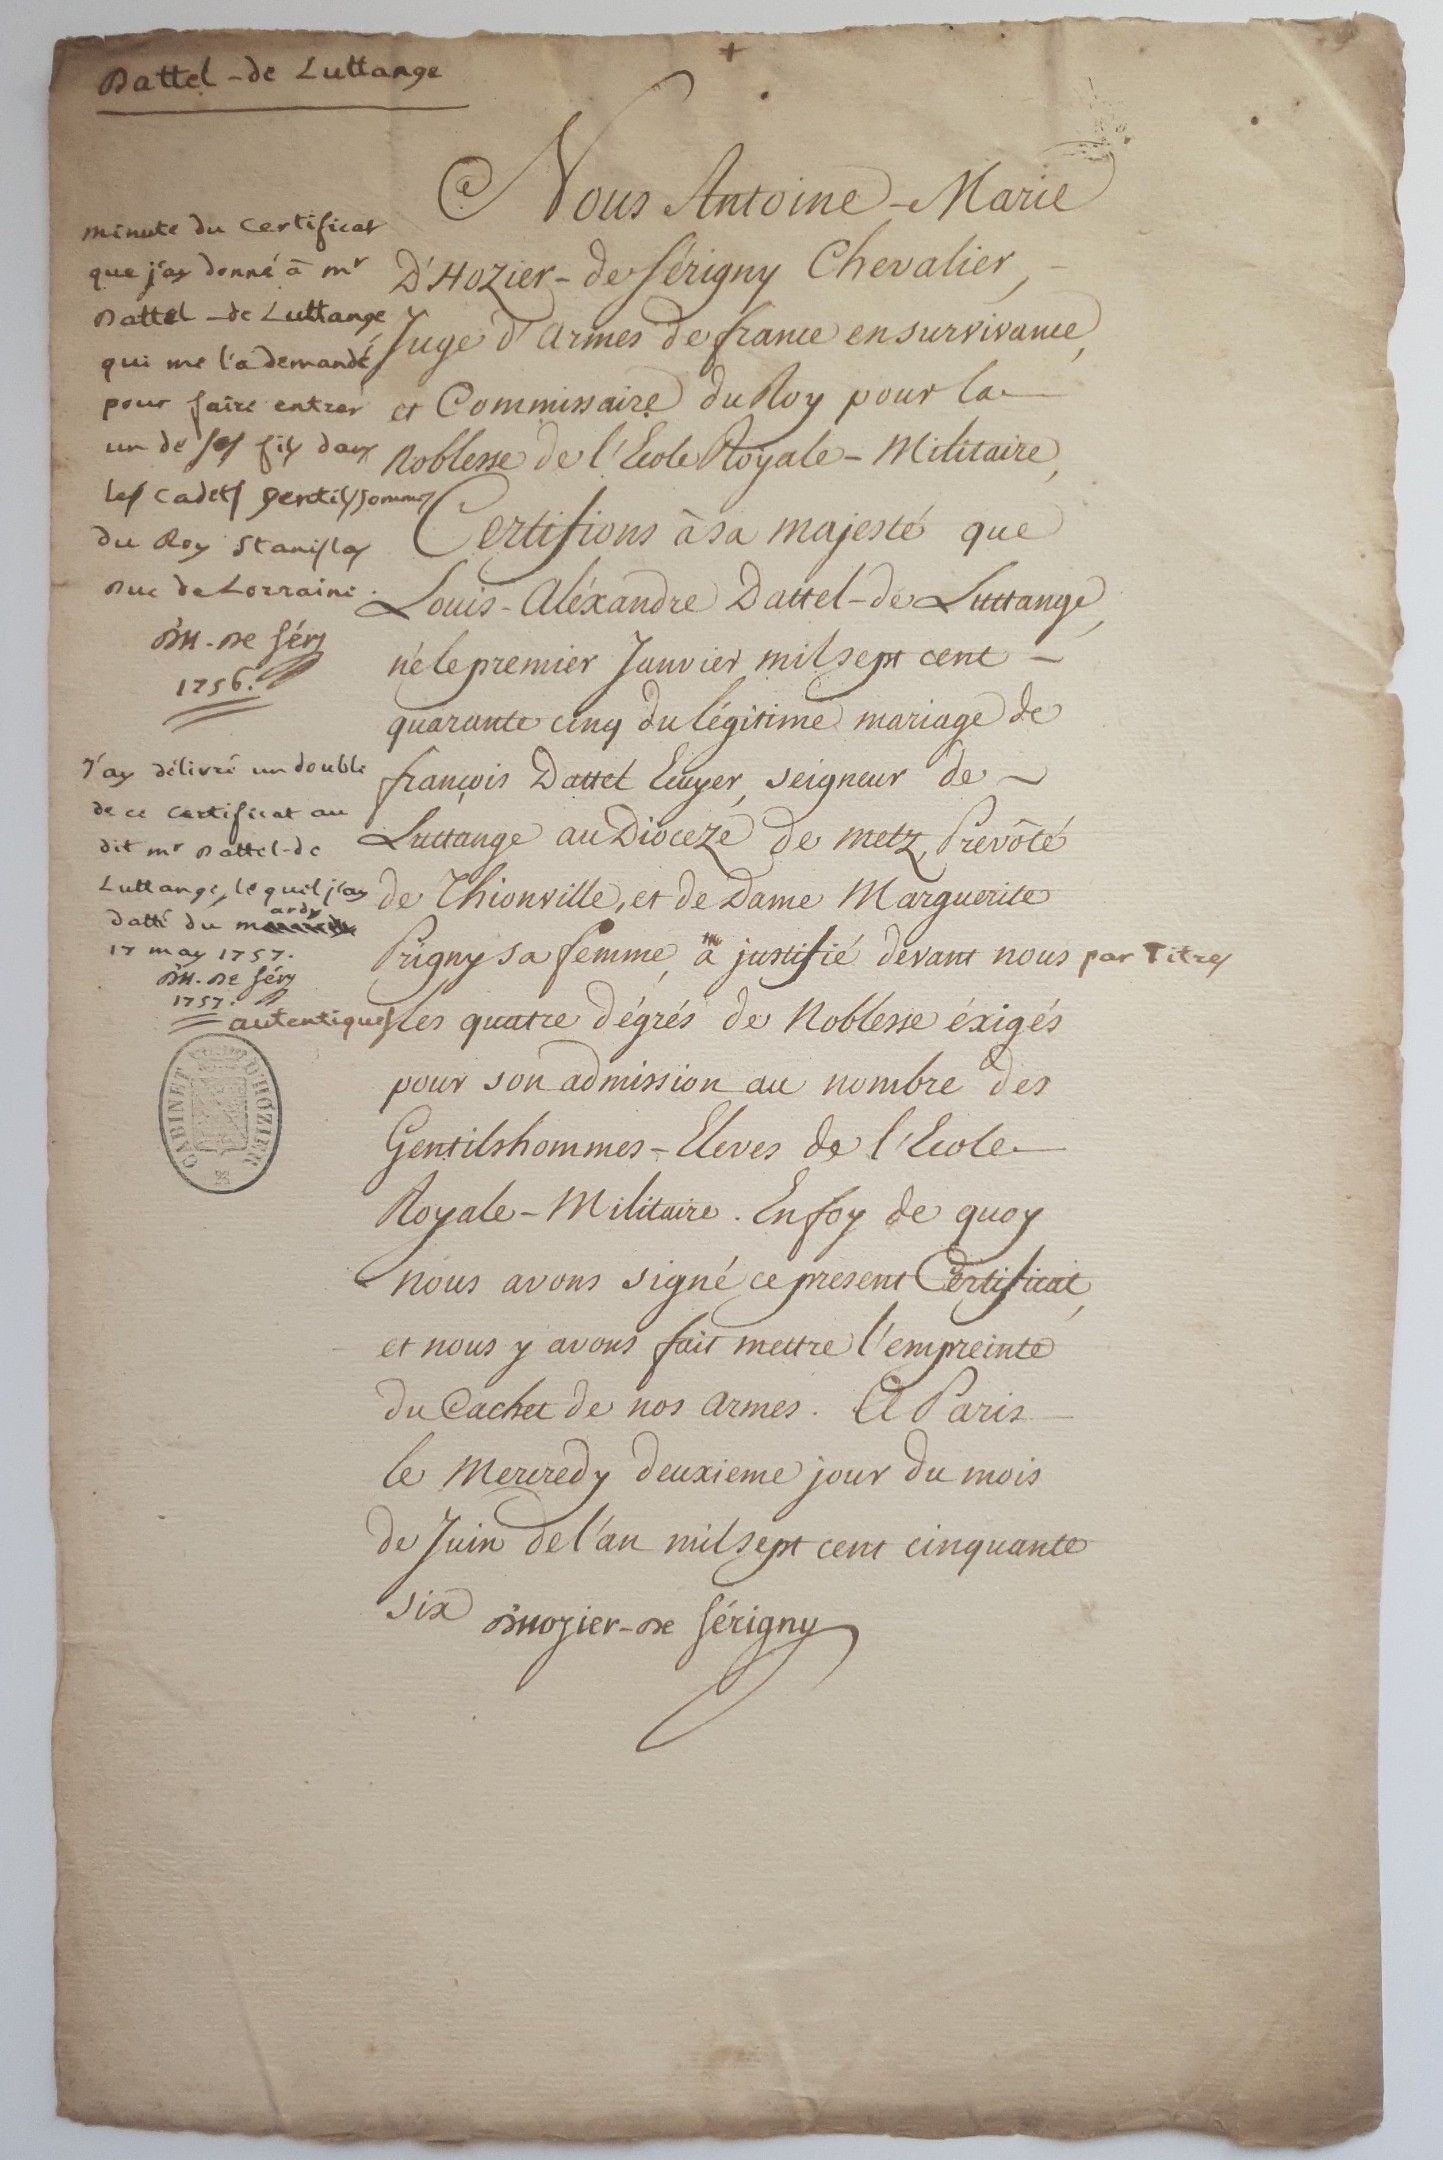 Dattel-de Luttange
minute du certificat
que j'ay donné à mr
Dattel-de Luttange
qui me l'a demandé
pour faire entrer
un de ses fils dans
les cadets gentilshommes
du Roy Stanislas
Duc de Lorraine.
D'H.-De Séry
1756.
J'ay délivré un double
de ce certificat au
dit mr Dattel-de
Luttange, lequel j'ay
datté du mardy
17 may 1757.
D'H.-De Séry
1757.
CABINET D'HOZIER
Nous Antoine-Marie
D'Hozier-de Sérigny Chevalier,
Juge d'Armes de france en survivance,
et Commissaire du Roy pour la
Noblesse de l'Ecole Royale-Militaire,
Certifions à sa majesté que
Louis-Aléxandre Dattel-de Luttange,
né le premier Janvier mil sept cent
quarante cinq du légitime mariage de
françois Dattel Ecuyer, seigneur de
Luttange au Diocezé de metz, Prevôté
de Thionville, et de Dame Marguerite
Prigny sa femme, a justifié devant nous par Titres
autentiques les quatre dégrés de Noblesse éxigés
pour son admission au nombre des
Gentilshommes-Eleves de l'Ecole
Royale-Militaire. En foy de quoy
nous avons signé ce present Certificat,
et nous y avons fait mettre l'empreinte
du Cachet de nos armes. A Paris
le Mercredy deuxieme jour du mois
de Juin de l'an mil sept cent cinquante
six D'Hozier-De Sérigny